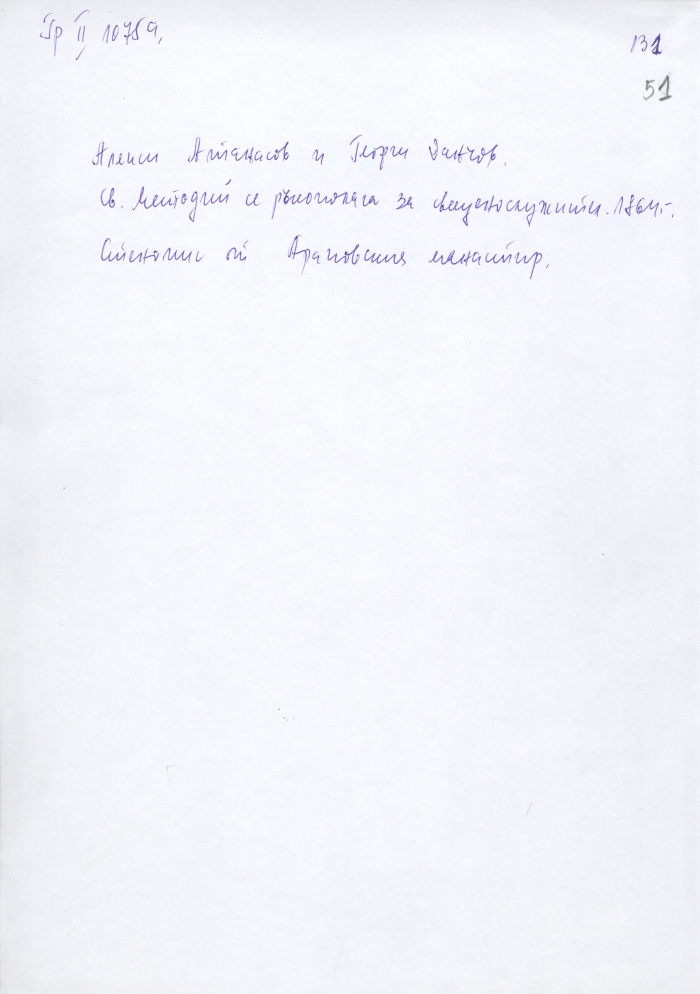 Гр II 1075а,
131
51
Алекси Атанасов и Георги Данчов.
Св. Методий се ръкополага за свещенослужител. 1864 г.
Стенопис от Араповския манастир.